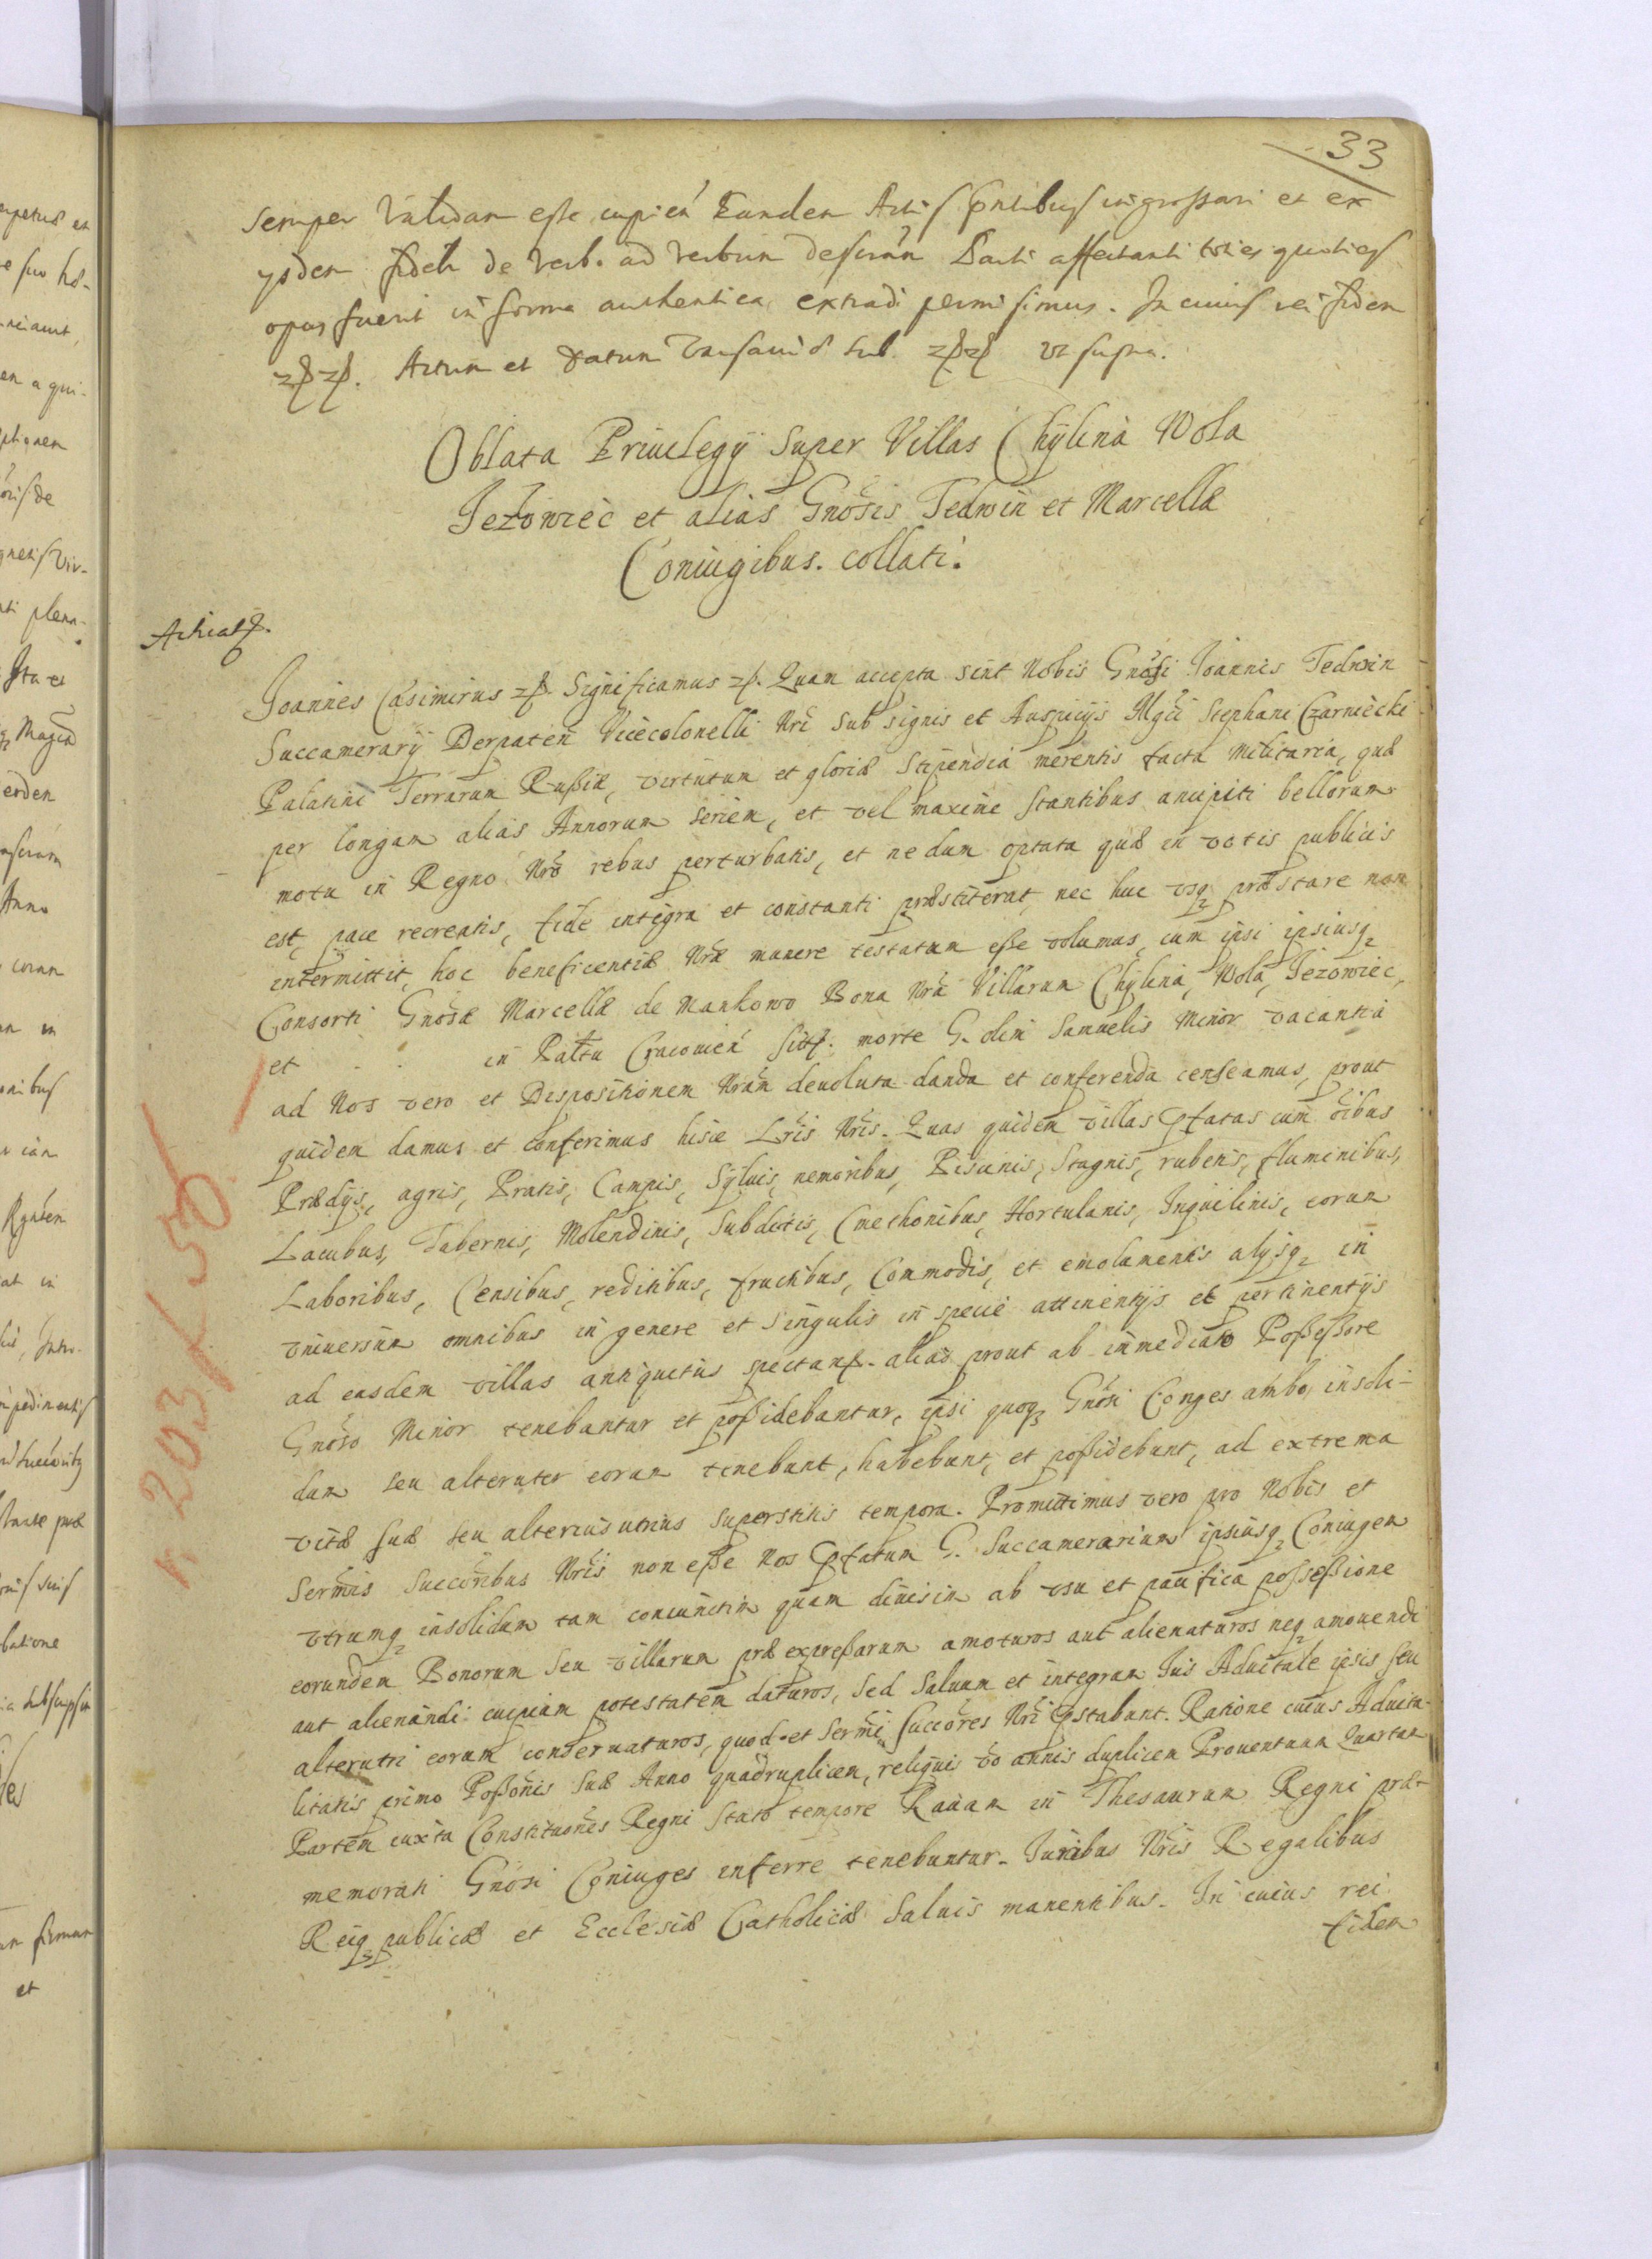 33
semper validam esse cupien Eandem Actis pntibus ingrossari et ex
ysdem fideli de verb. ad verbum descriñ Parti affectanti toties quoties
opus fuerit in forma authentica extradi permisimus. In cuius rei fidem
Actum et Datum Varsaviæ sub. ut supra.
Oblata Priuilegÿ super Villas Chÿlina Wola
Jeżowiec et alias Gnosis Tedwin et Marcellæ
Coniugibus. collati.
Joannes Casimirus Significamus Quam accepta sint Nobis Gnosi Joannis Tedwin
Succamerarÿ Derpaten Vicecolonelli Nri sub signis et Auspicÿs Mgci Stephani Czarniecki
Palatini Terrarum Rußiæ, virtutum et gloriæ Stipendia merentis facta militaria, quæ
per longam alias Annorum seriem, et vel maxime stantibus ancipiti bellorum
motu in Regno Nro rebus perturbatis, et nedum optata quæ in votis publicis
est, pace recreatis, fide integra et constanti præstiterat, nec huc vsq præstare non
intermittit, hoc beneficentiæ Nræ munere testatum eße volumus, cum ipsi ipsiusq
Consorti Gnosæ Marcellæ de Mankowo Bona Nra Villarum Chÿlina, Wola, Jezowiec,
et . . in Palttu Cracovien sita. morte G. olim Samuelis Minor vacantia
ad Nos vero et Dispositionem Nram deuoluta danda et conferenda censeamus, prout
quidem damus et conferimus hisce Lris Nris. Quas quidem villas pfatas cum oibus
Prædÿs, agris, Pratis, Campis, Sÿluis, nemoribus, Piscinis, Stagnis, rubetis, fluminibus,
Lacubus, Tabernis, Molendinis, Subditis, Cmethonibus, Hortulanis, Inquilinis, eorum
Laboribus, Censibus, reditibus, fructibus, Commodis, et emolumentis alÿsq in
vniuersum omnibus in genere et singulis in specie attinentÿs et pertinentÿs
ad easdem villas antiquitus spectan. aliàs prout ab immediato Poßeßore
Gnoso Minor tenebantur et poßidebantur, ipsi quoq Gnosi Conges ambo insoli-
dum seu alteruter eorum tenebunt, habebunt, et poßidebunt, ad extrema
vitæ suæ seu alterius utrius superstitis tempora. Promittimus vero pro Nobis et
Sermis Succoribus Nris non eße Nos pfatum G. Succamerarium ipsiusq Coniugem
vtrumq insolidum tam coniunctim quam diuisim ab vsu et pacifica posseßione
eorundem Bonorum seu villarum præexpreßarum amoturos aut alienaturos neq amouendi
aut alienandi cuipiam potestatem daturos, sed saluum et integrum Ius Aduitale ipsis seu
alterutri eorum conseruaturos, quod et Sermi Succores Nri pstabunt. Ratione cuius Aduita-
litatis primo Poßonis suæ Anno quadruplicem, reliquis vo annis duplicem Prouentuum Quartam
Partem iuxta Constitutiones Regni stato tempore Rauam in Thesaurum Regni præ-
memorati Gnosi Coniuges inferre tenebuntur. Iuribus Nris Regalibus
Reiq publicæ et Ecclesiæ Catholicæ saluis manentibus. In cuius rei
fidem